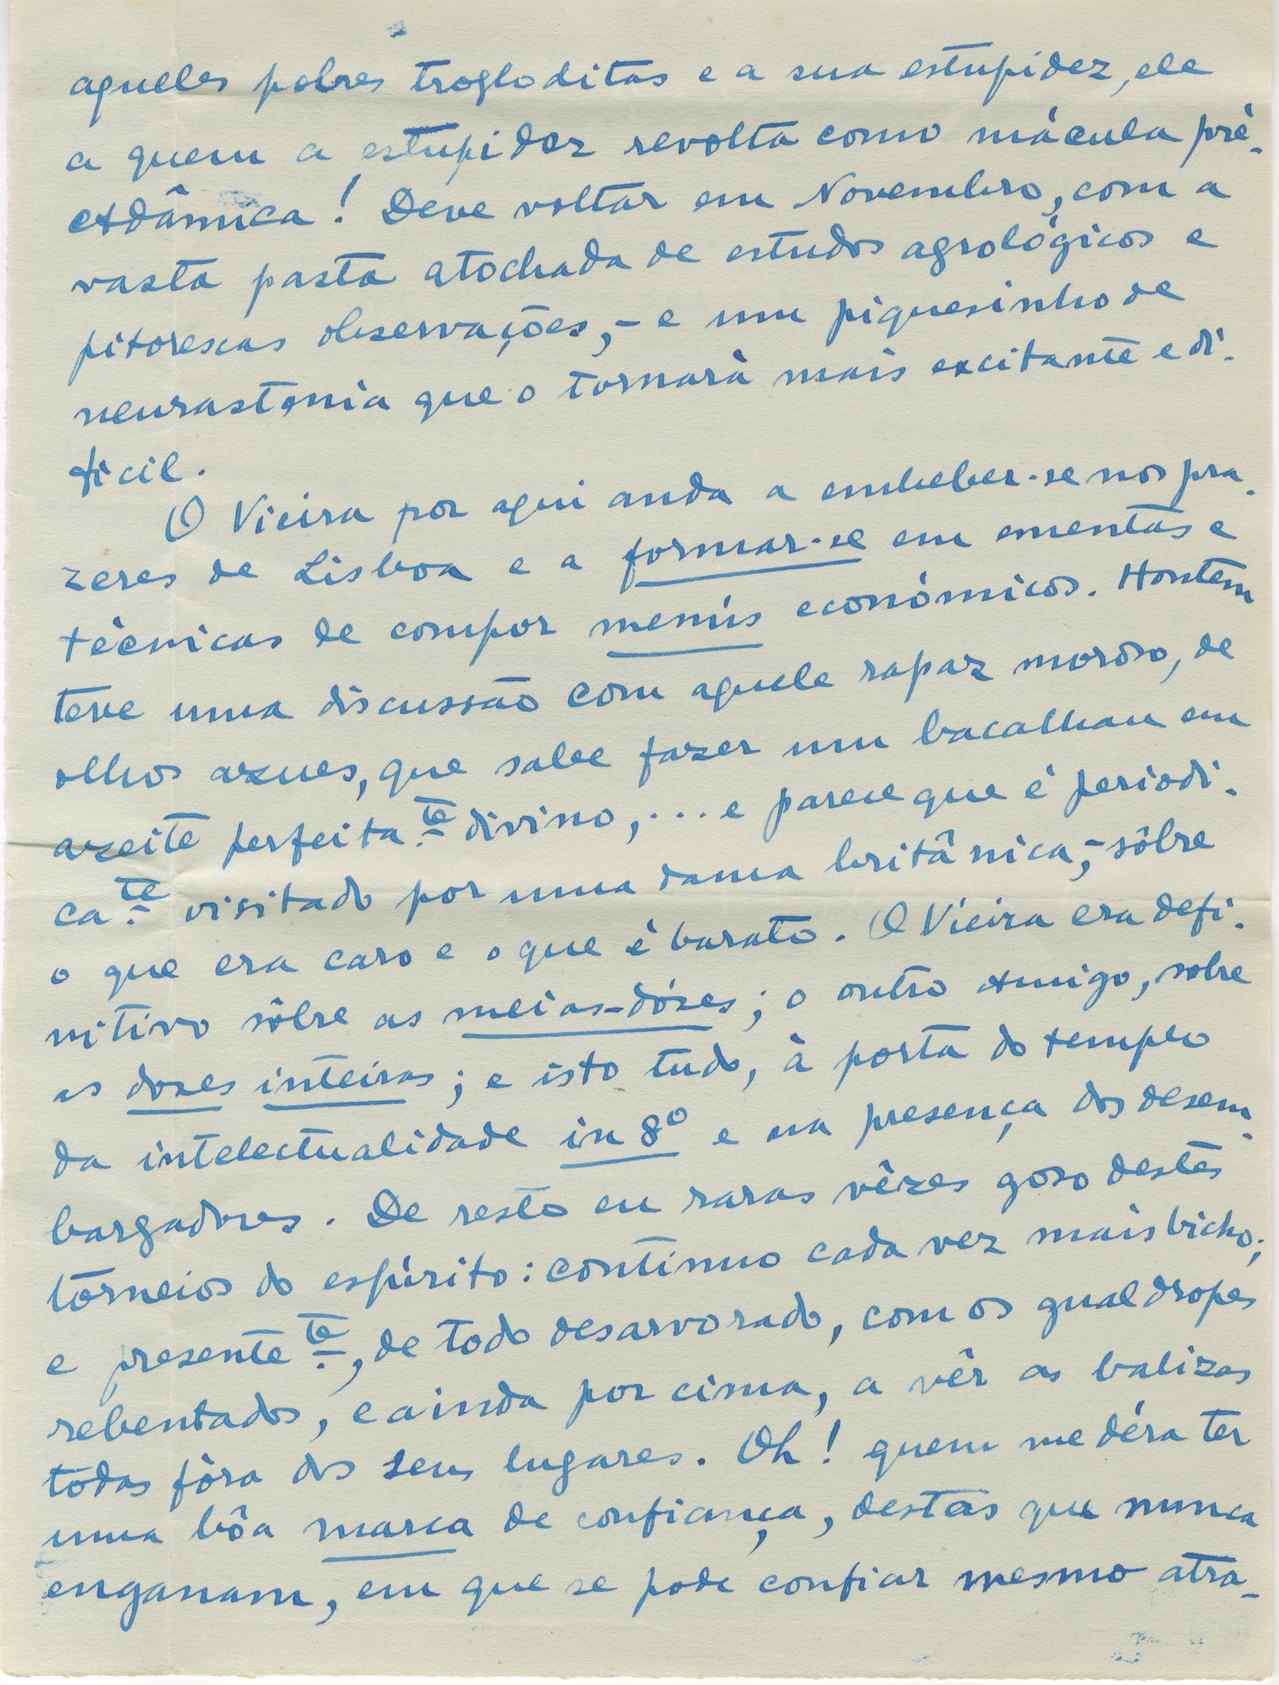 aqueles pobres trogloditas e a sua estupidez, ele
a quem a estupidez revolta como mácula pré-
Adâmica! Deve voltar em Novembro, com a
vasta pasta atochada de estudos agrológicos e
pitorescas observações, - e um piquesinho de
neurastenia que o tornará mais excitante e di-
ficil.
O Vieira por aqui anda a embeber-se nos pra-
zeres de Lisboa e a formar-se em ementas e
técnicas de compor menús económicos. Hontem
teve uma discussão com aquele rapaz moroso, de
olhos azues, que sabe fazer um bacalhau em
azeite perfeita.te divino, ... e parece que é periodi-
ca.te visitado por uma dama britânica, - sôbre
o que era caro e o que é barato. O Vieira era defi-
nitivo sôbre as meias-dóses; o outro Amigo, sobre
as doses inteiras; e isto tudo, à porta do templo
da intelectualidade in 8º e na presença dos desem-
bargadores. De resto eu raras vêzes goso destes
torneios do espírito: continuo cada vez mais bicho;
e presente.te, de todo desarvorado, com os gualdropes
rebentados, e ainda por cima, a vêr as balizas
todas fóra dos seus lugares. Oh! quem me déra ter
uma bôa marca de confiança, destas que nunca
enganam, em que se pode confiar mesmo atra-